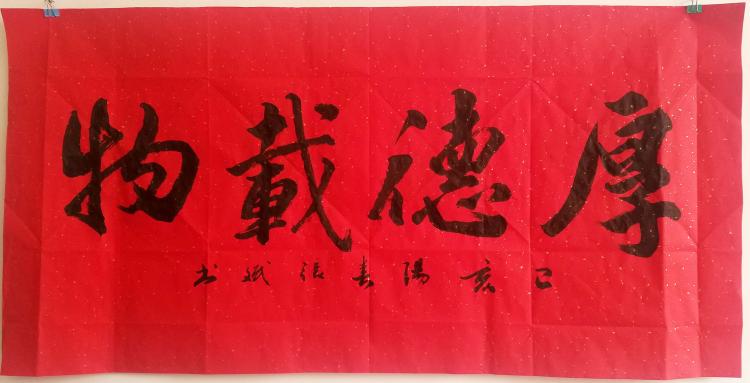 厚德載物
己亥陽春張书